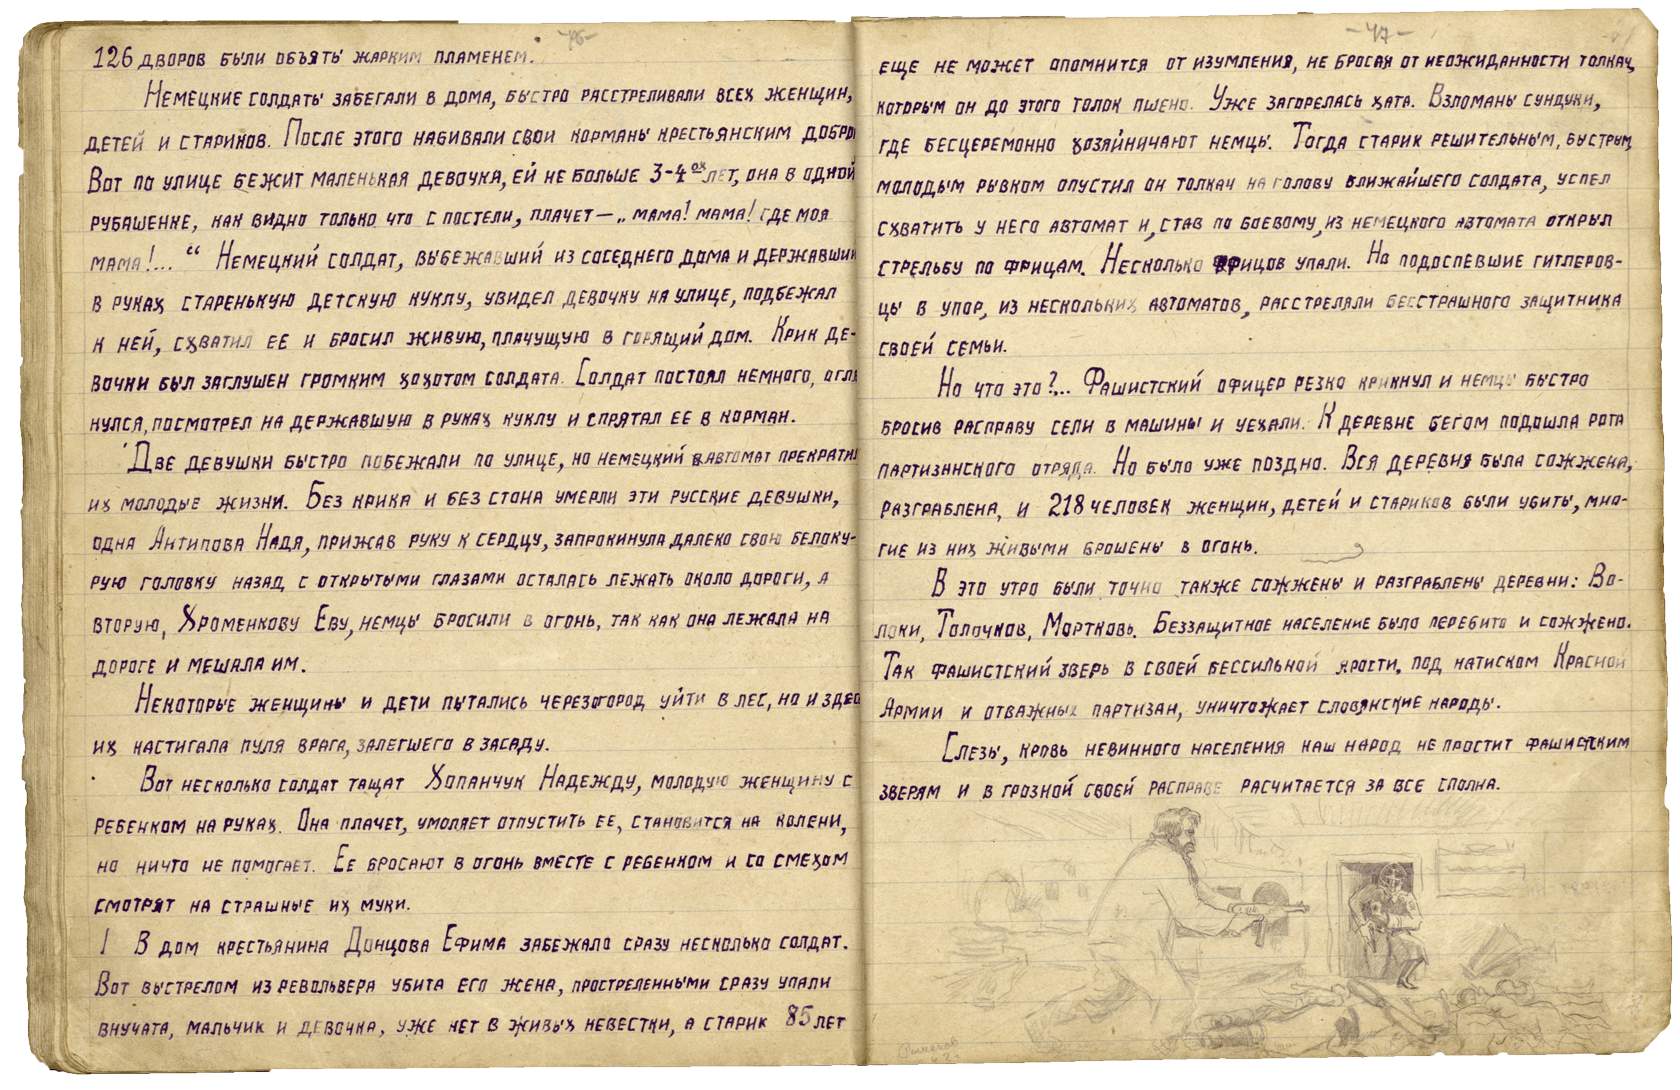 -46-
126 дворов были объяты жарким пламенем.
Немецкие солдаты забегали в дома, быстро расстреливали всех женщин,
детей и стариков. После этого набивали свои корманы крестьянским добро
Вот по улице бежит маленькая девочка, ей не больше 3-4ох лет, она в одной
рубашенке, как видно только что с постели, плачет — „мама! мама! где моя
мама!... “ Немецкий солдат, выбежавший из соседнего дома и державший
в руках старенькую детскую куклу, увидел девочку на улице, подбежал
к ней, схватил ее и бросил живую, плачущую в горящий дом. Крик де-
вочки был заглушен громким хохотом солдата. Солдат постоял немного, огля
нулся, посмотрел на державшую в руках куклу и спрятал ее в корман.
Две девушки быстро побежали по улице, но немецкий автомат прекратил
их молодые жизни. Без крика и без стона умерли эти русские девушки,
одна Антипова Надя, прижав руку к сердцу, запрокинула далеко свою белоку-
рую головку назад с открытыми глазами осталась лежать около дороги, а
вторую, Хроменкову Еву, немцы бросили в огонь, так как она лежала на
дороге и мешала им.
Некоторые женщины и дети пытались через огород уйти в лес, но и здес
их настигала пуля врага, залегшего в засаду.
Вот несколько солдат тащат Хопанчук Надежду, молодую женщину с
ребенком на руках. Она плачет, умоляет отпустить ее, становится на колени,
но ничто не помогает. Ее бросают в огонь вместе с ребенком и со смехом
смотрят на страшные их муки.
В дом крестьянина Донцова Ефима забежало сразу несколько солдат.
Вот выстрелом из револьвера убита его жена, простреленными сразу упали
внучата, мальчик и девочка, уже нет в живых невестки, а старик 85 лет
-47-
еще не может опомнится от изумления, не бросая от неожиданности толкач,
которым он до этого толок пшено. Уже загорелась хата. Взломаны сундуки,
где бесцеремонно хозяйничают немцы. Тогда старик решительным, быстрым,
молодым рывком опустил он толкач на голову ближайшего солдата, успел
схватить у него автомат и, став по боевому, из немецкого автомата открыл
стрельбу по фрицам. Несколько фрицов упали. Но подоспевшие гитлеров-
цы в упор, из нескольких автоматов, расстреляли бесстрашного защитника
своей семьи.
Но что это?... Фашистский офицер резко крикнул и немцы быстро
бросив расправу сели в машины и уехали. К деревне бегом подошла рота
партизанского отряда. Но было уже поздно. Вся деревня была сожжена,
разграблена, и 218 человек женщин, детей и стариков были убиты, мно-
гие из них живыми брошены в огонь.
В это утро были точно также сожжены и разграблены деревни: Во-
локи, Толочков, Мортковь. Беззащитное население было перебито и сожжено.
Так фашистский зверь в своей бессильной ярости, под натиском Красной
Армии и отважных партизан, уничтожает словянские народы.
Слезы, кровь невинного населения наш народ не простит фашистким
зверям и в грозной своей расправе расчитается за все сполна.